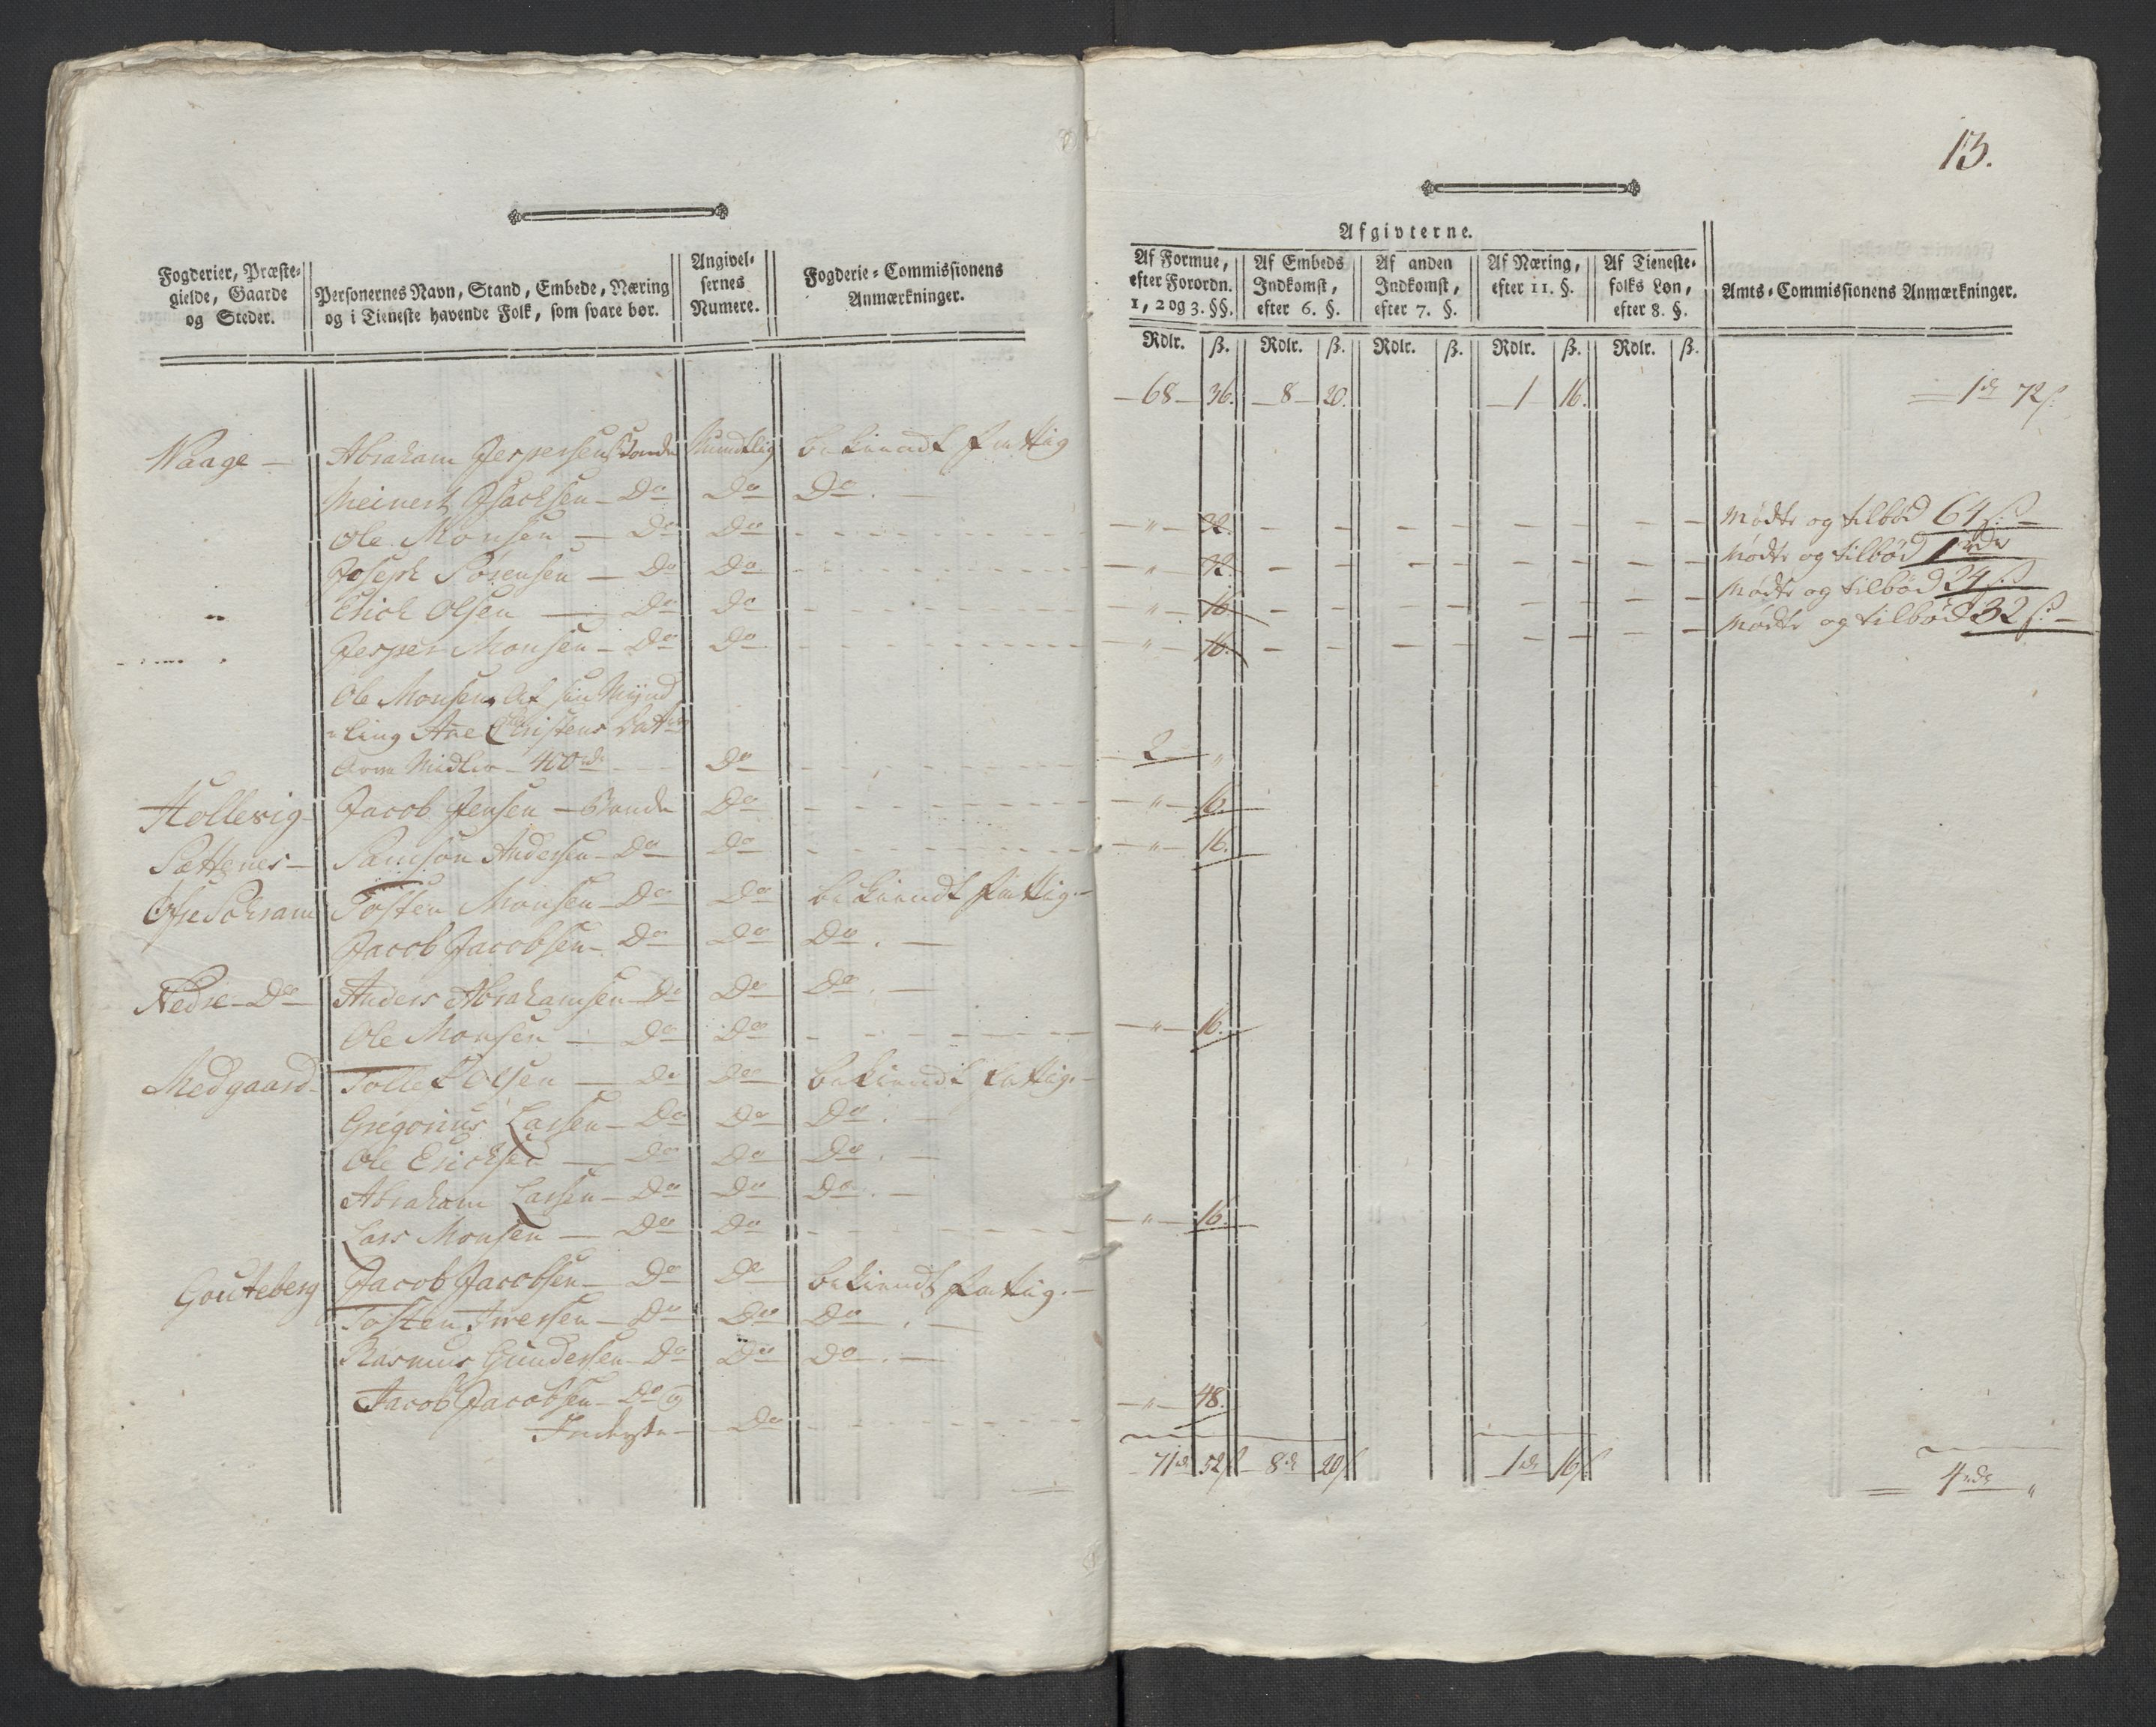 13.
Afgivterne.
Fogderier, Præste-
gielde, Gaarde
og Steder.
Personernes Navn, Stand, Embede, Næring
og i Tieneste havende Folk, som svare bør.
Angivel-
sernes
Numere.
Fogderie-Commissionens
Anmærkninger.
Af Formue,
efter Forordn.
1, 2 og 3. §§.
Af Embeds
Indkomst,
efter 6. §.
Af anden
Indkomst,
efter 7. §.
Af Næring,
efter 11. §.
Af Tieneste-
folks Løn,
efter 8. §.
Amts-Commissionens Anmærkninger.
Rdlr. ß. Rdlr. ß. Rdlr. ß. Rdlr. ß. Rdlr. ß.
— 68 — 36. — 8 — 20. — 1 16. 1 rd 72 ß.
Waage — Abraham Jespersen Bonde Mundtlig bekiendt fattig
Meinert Isachsen — Do Do Do. —
Ole Monsen — Do Do — " — 32. Mødte og tilbød 64 ß. —
Joseph Sørensen — Do Do — " — 32. Mødte og tilbød 1 rdr
Erich Olsen — Do Do " 16. Mødte og tilbød 24 ß.
Jesper Monsen — Do Do — " — 16. Mødte og tilbød 32 ß. —
Ole Monsen, Af sin Mynd
ling Ane Christens Datters
Arve Midler — 400 rdr Do 2 "
Hollevig — Jacob Jensen — Bonde Do — " — 16.
Sættenes — Samson Andersen — Do Do — " — 16.
Øfre Tosten Monsen — Do Do bekiendt fattig. —
Jacob Jacobsen — Do Do Do. —
Nedre — Do Anders Abrahamsen — Do Do Do. —
Ole Monsen — Do Do — " — 16.
Medgaard — Tolle Olsen — Do Do bekiendt fattig. —
Gregorius Larsen — Do Do Do. —
Ole Erichsen — Do Do Do. —
Abraham Larsen — Do Do Do. —
Lars Monsen — Do Do — " — 16.
Gouteberg Jacob Jacobsen — Do Do bekiendt fattig. —
Tosten Iversen — Do Do Do. —
Rasmus Gundersen — Do Do Do. —
Jacob Jacobsen — Do og — " — 48.
Do
71 rd 52 ß 8 rd 20 ß 1 rd 16 ß 4 rdr "